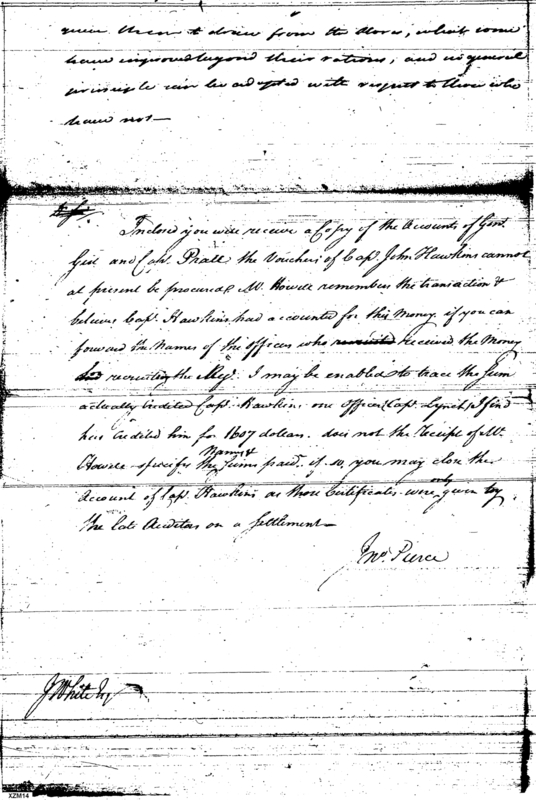 given them to draw from the stores, what some
have improved beyond their rations, and no general
principle can be adopted with respect to those who
have not—
Inclosed you will receive a Copy of the Accounts of Genl.
Gist and Cap. Prall the Vouchers of Cap. John Hawkins cannot
at present be procured, Mr. Howell remembers the transaction &
believes Cap. Hawkins, had accounted for this Money. if you can
forward the Names of the officers who recruited received the Money
recruiting the Regt. I may be enabled to trace the Sum
actually Credited Cap. Hawkins one officer (Cap. Lynch) I find
has Credited him for 1607 dollars. does not the Receipt of Mr.
Names &
Howell specify the Sums paid. if so, you may close the
only
Account of Cap. Hawkins as those Certificates were given by
the late Auditors on a Settlement—
Jno. Pierce
J White Esq
XZM14